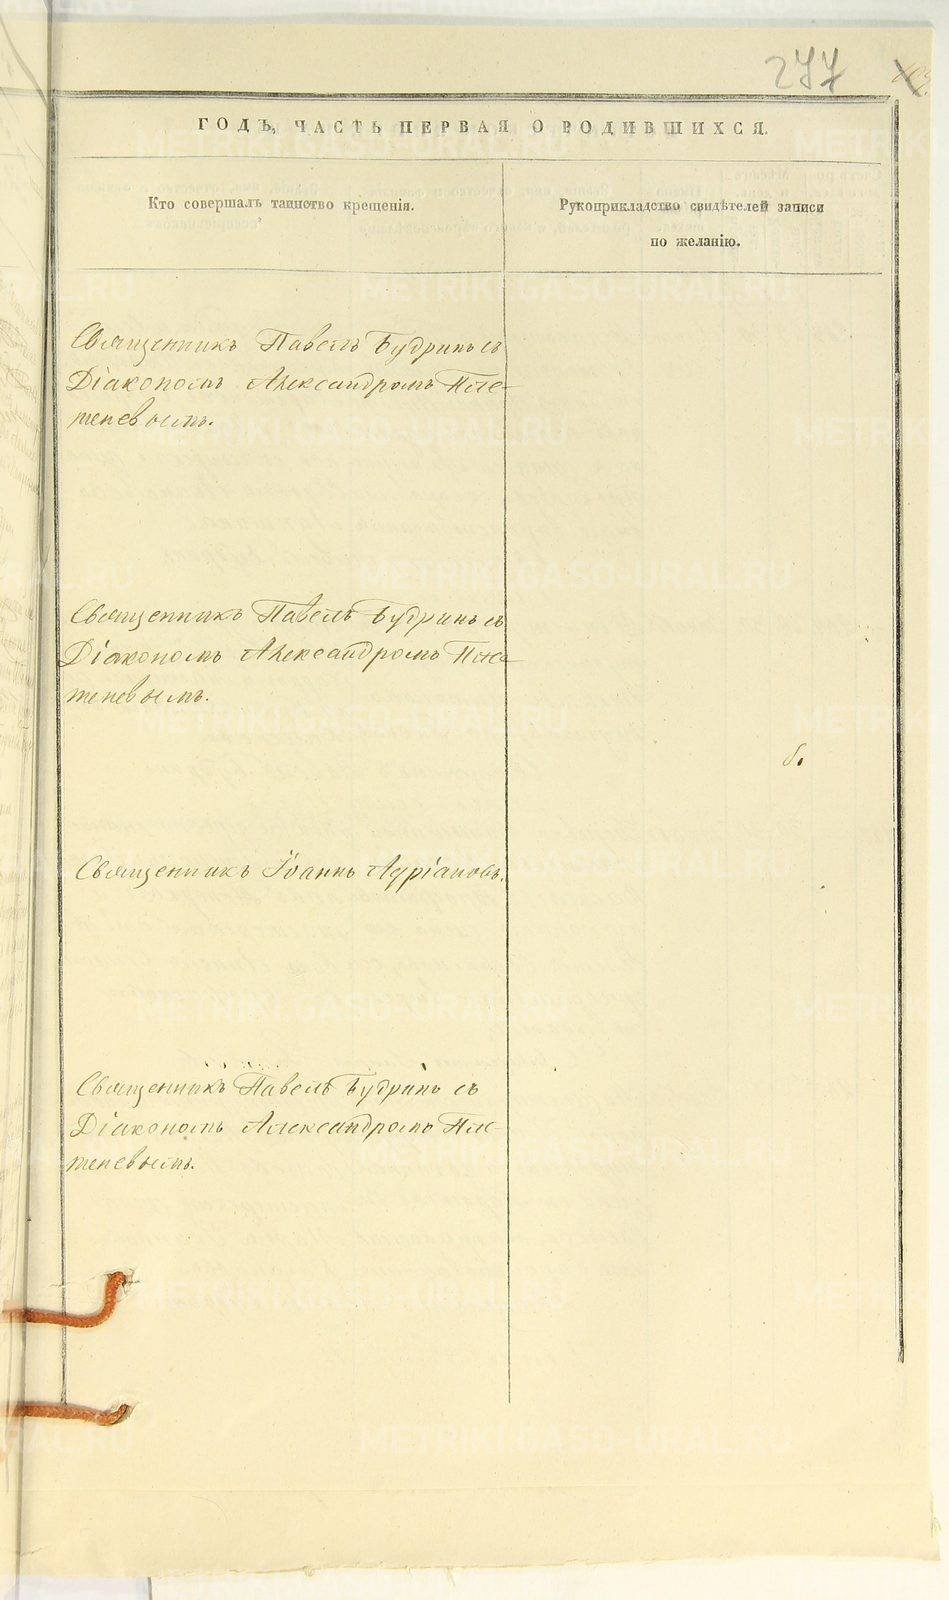 277
ГОДЪ, ЧАСТЬ ПЕРВАЯ О РОДИВШИХСЯ.
Кто совершалъ таинство крещенія.
Рукоприкладство свидѣтелей записи
по желанію.
Священникъ Павелъ Будринъ съ
Діакономъ Александромъ Пле-
теневымъ.
Священникъ Павелъ Будринъ съ
Діакономъ Александромъ Пле-
теневымъ.
Священникъ Іоаннъ Адріановъ.
Священникъ Павелъ Будринъ съ
Діакономъ Александромъ Пле-
теневымъ.
METRIKI.GASO-URAL.RU